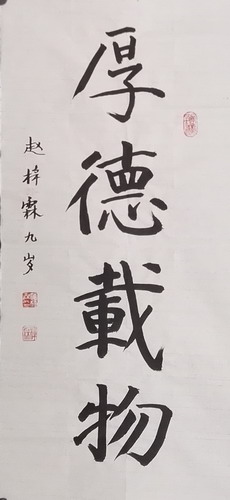 厚德載物
赵梓霖九岁